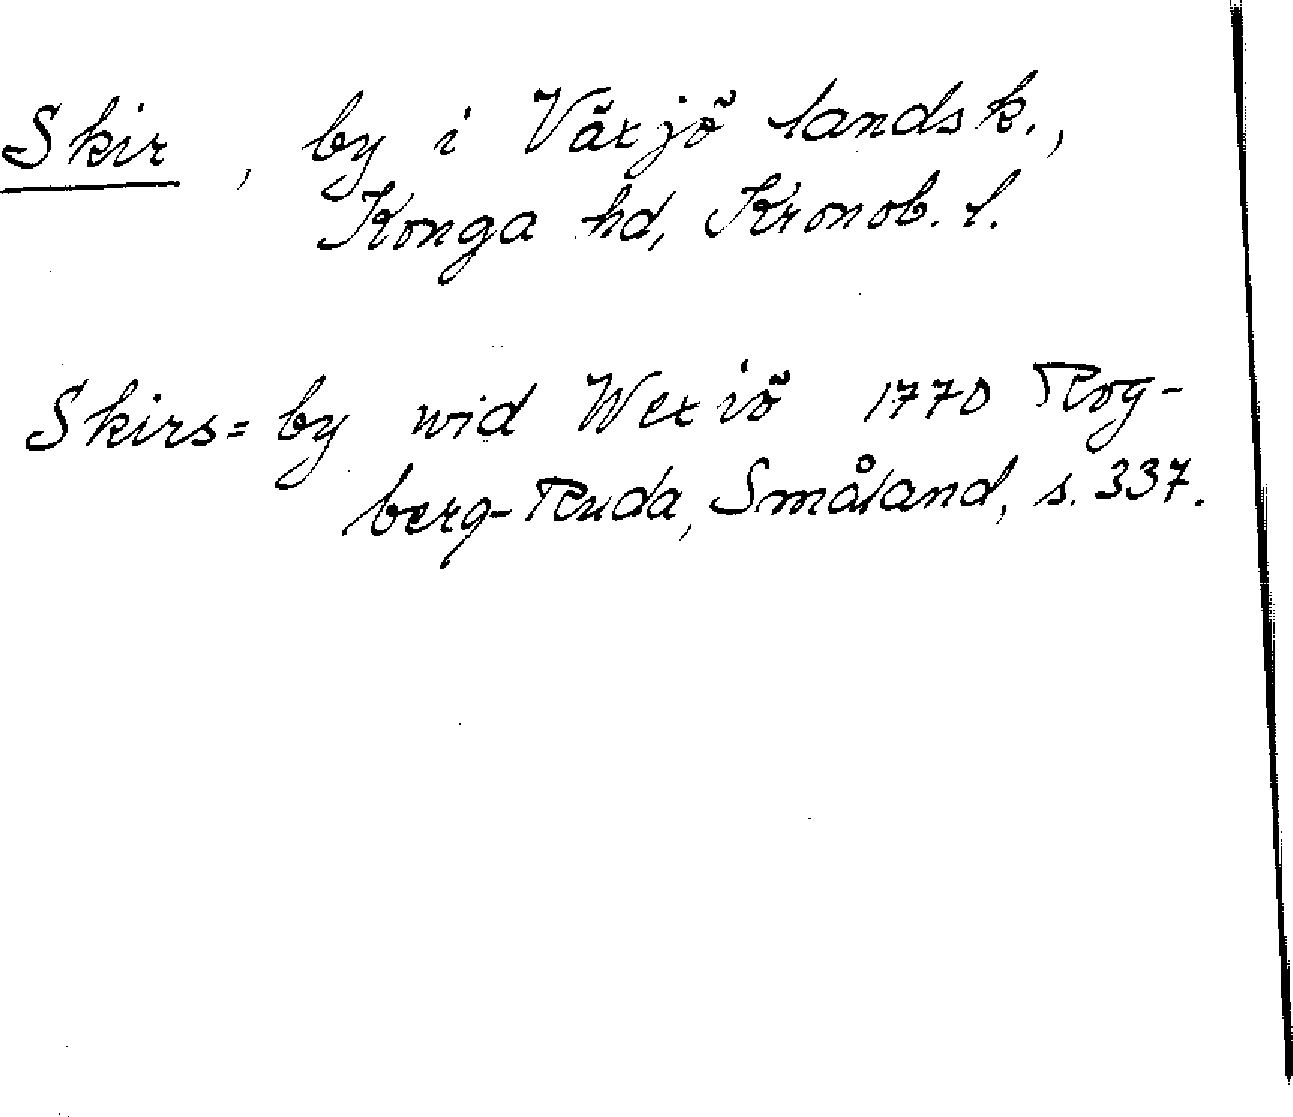 Skir, by i Växjö landsk.,
Konga hd, Kronob. l.
Skirs=by wid Wexiö 1770 Rog-
berg-Ruda, Småland, s. 337.